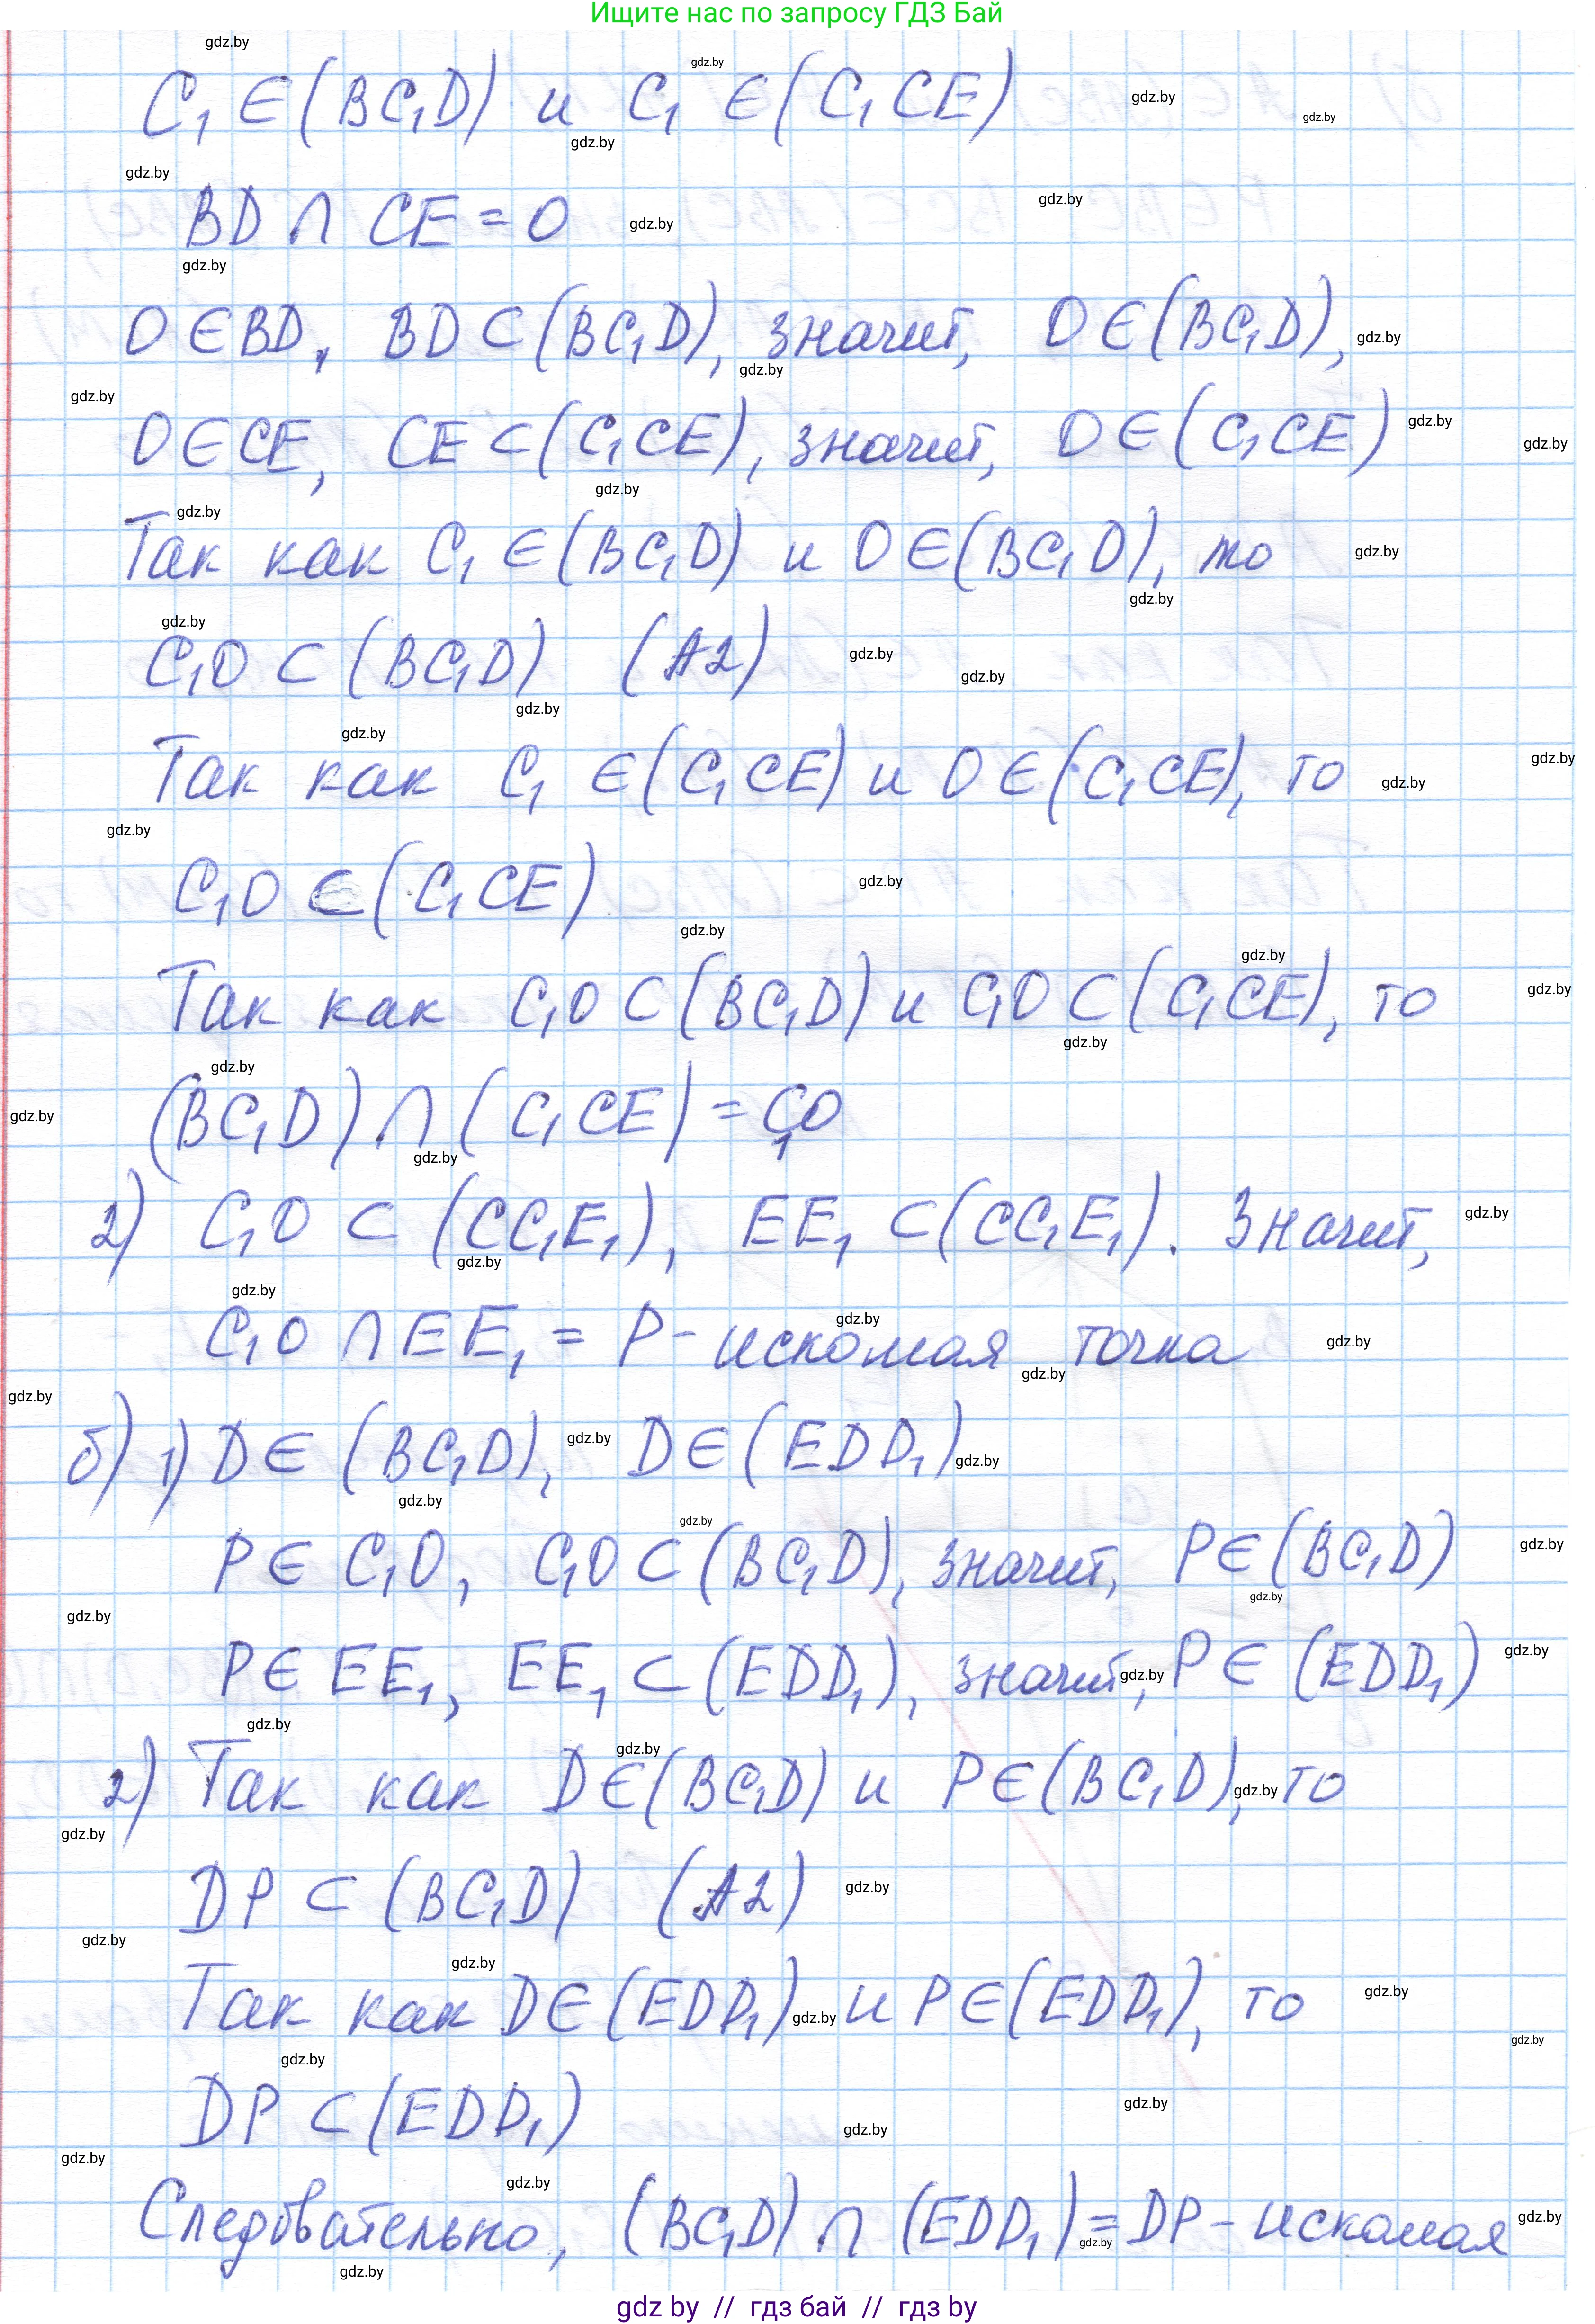 Ищите нас по запросу ГДЗ Бай
C₁ ∈ (BC₁D) и C₁ ∈ (C₁CE)
BD ∩ CE = O
O ∈ BD, BD ⊂ (BC₁D), значит, O ∈ (BC₁D),
O ∈ CE, CE ⊂ (C₁CE), значит, O ∈ (C₁CE)
Так как C₁ ∈ (BC₁D) и O ∈ (BC₁D), то
C₁O ⊂ (BC₁D) (A2)
Так как C₁ ∈ (C₁CE) и O ∈ (C₁CE), то
C₁O ⊂ (C₁CE)
Так как C₁O ⊂ (BC₁D) и C₁O ⊂ (C₁CE), то
(BC₁D) ∩ (C₁CE) = C₁O
2) C₁O ⊂ (CC₁E₁), EE₁ ⊂ (CC₁E₁). Значит,
C₁O ∩ EE₁ = P - искомая точка
б) 1) D ∈ (BC₁D), D ∈ (EDD₁)
P ∈ C₁O, C₁O ⊂ (BC₁D), значит, P ∈ (BC₁D)
P ∈ EE₁, EE₁ ⊂ (EDD₁), значит, P ∈ (EDD₁)
2) Так как D ∈ (BC₁D) и P ∈ (BC₁D), то
DP ⊂ (BC₁D) (A2)
Так как D ∈ (EDD₁) и P ∈ (EDD₁), то
DP ⊂ (EDD₁)
Следовательно, (BC₁D) ∩ (EDD₁) = DP - искомая
gdz by // гдз бай // гдз by